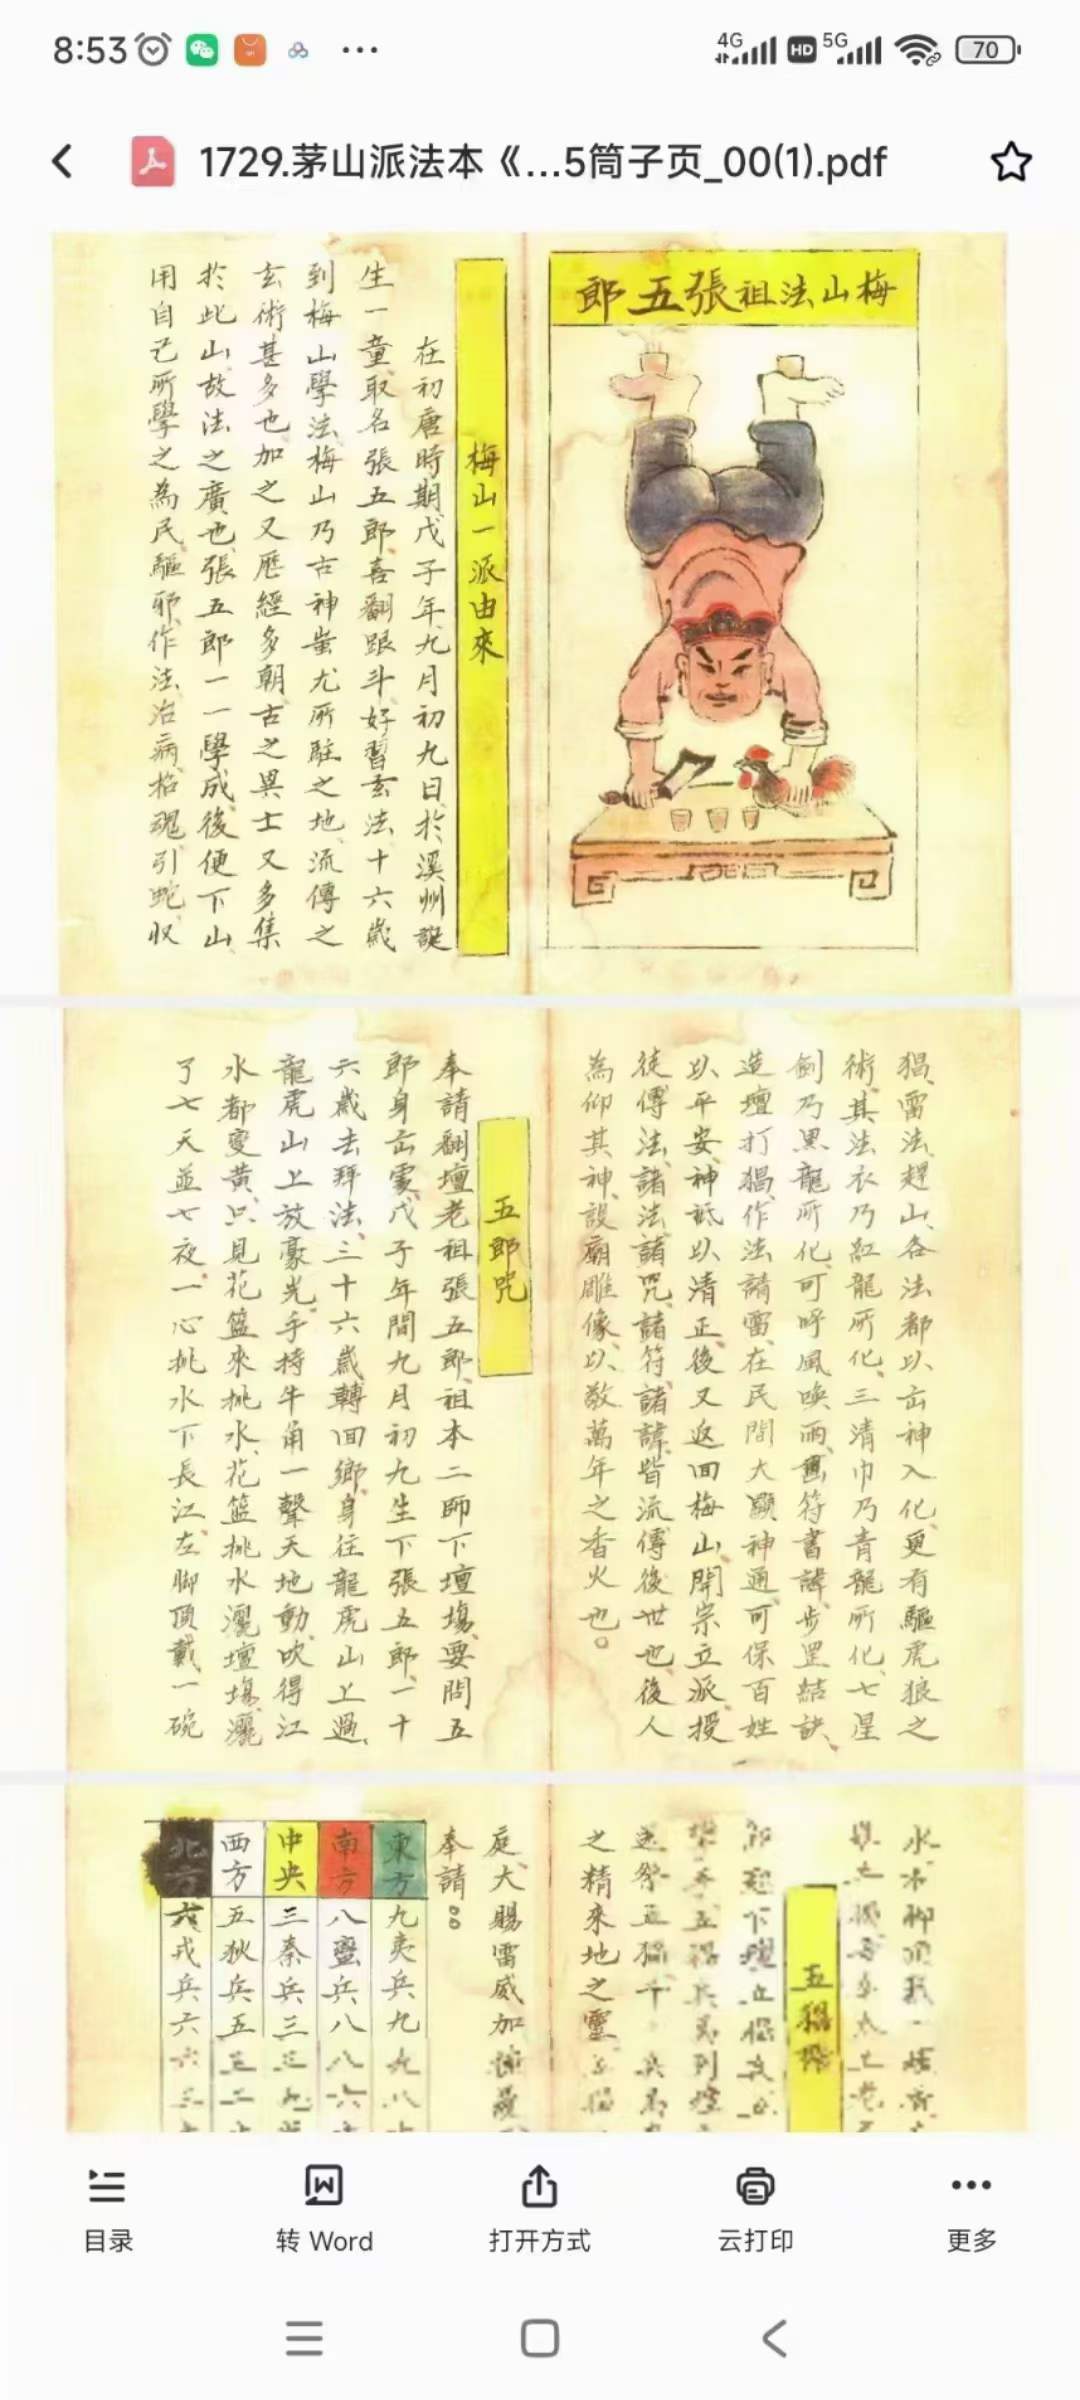 8:53
4G HD 5G 70
1729.茅山派法本《...5筒子页_00(1).pdf
梅山法祖張五郎
梅山一派由來
在初唐時期戊子年九月初九日於溪州誕
生一童取名張五郎喜翻跟斗好習玄法十六歲
到梅山學法梅山乃古神蚩尤所駐之地流傳之
玄術甚多也加之又歷經多朝古之異士又多集
於此山故法之廣也張五郎一一學成後便下山
用自己所學之為民驅邪作法治病招魂引蛇收
猖雷法趕山各法都以出神入化更有驅虎狼之
術其法衣乃紅龍所化三清巾乃青龍所化七星
劍乃黑龍所化可呼風喚雨畫符書諱步罡結訣
造壇打猖作法請雷在民間大顯神通可保百姓
以平安神祇以清正後又返回梅山開宗立派授
徒傳法諸法諸咒諸符諸諱皆流傳後世也後人
為仰其神設廟雕像以敬萬年之香火也。
五郎咒
奉請翻壇老祖張五郎祖本二師下壇場要問五
郎身出處戊子年間九月初九生下張五郎一十
六歲去拜法三十六歲轉回鄉身往龍虎山上過
龍虎山上放豪光手持牛角一聲天地動吹得江
水都變黃只見花籃來挑水花籃挑水灑壇場灑
了七天並七夜一心挑水下長江左腳頂戴一碗
水右腳頂
五猖
之精來地之靈
庭大賜雷威加
奉請：
東方 九夷兵九
南方 八蠻兵八八六
中央 三秦兵三
西方 五狄兵五
北方 六戎兵六
目录
转 Word
打开方式
云打印
更多